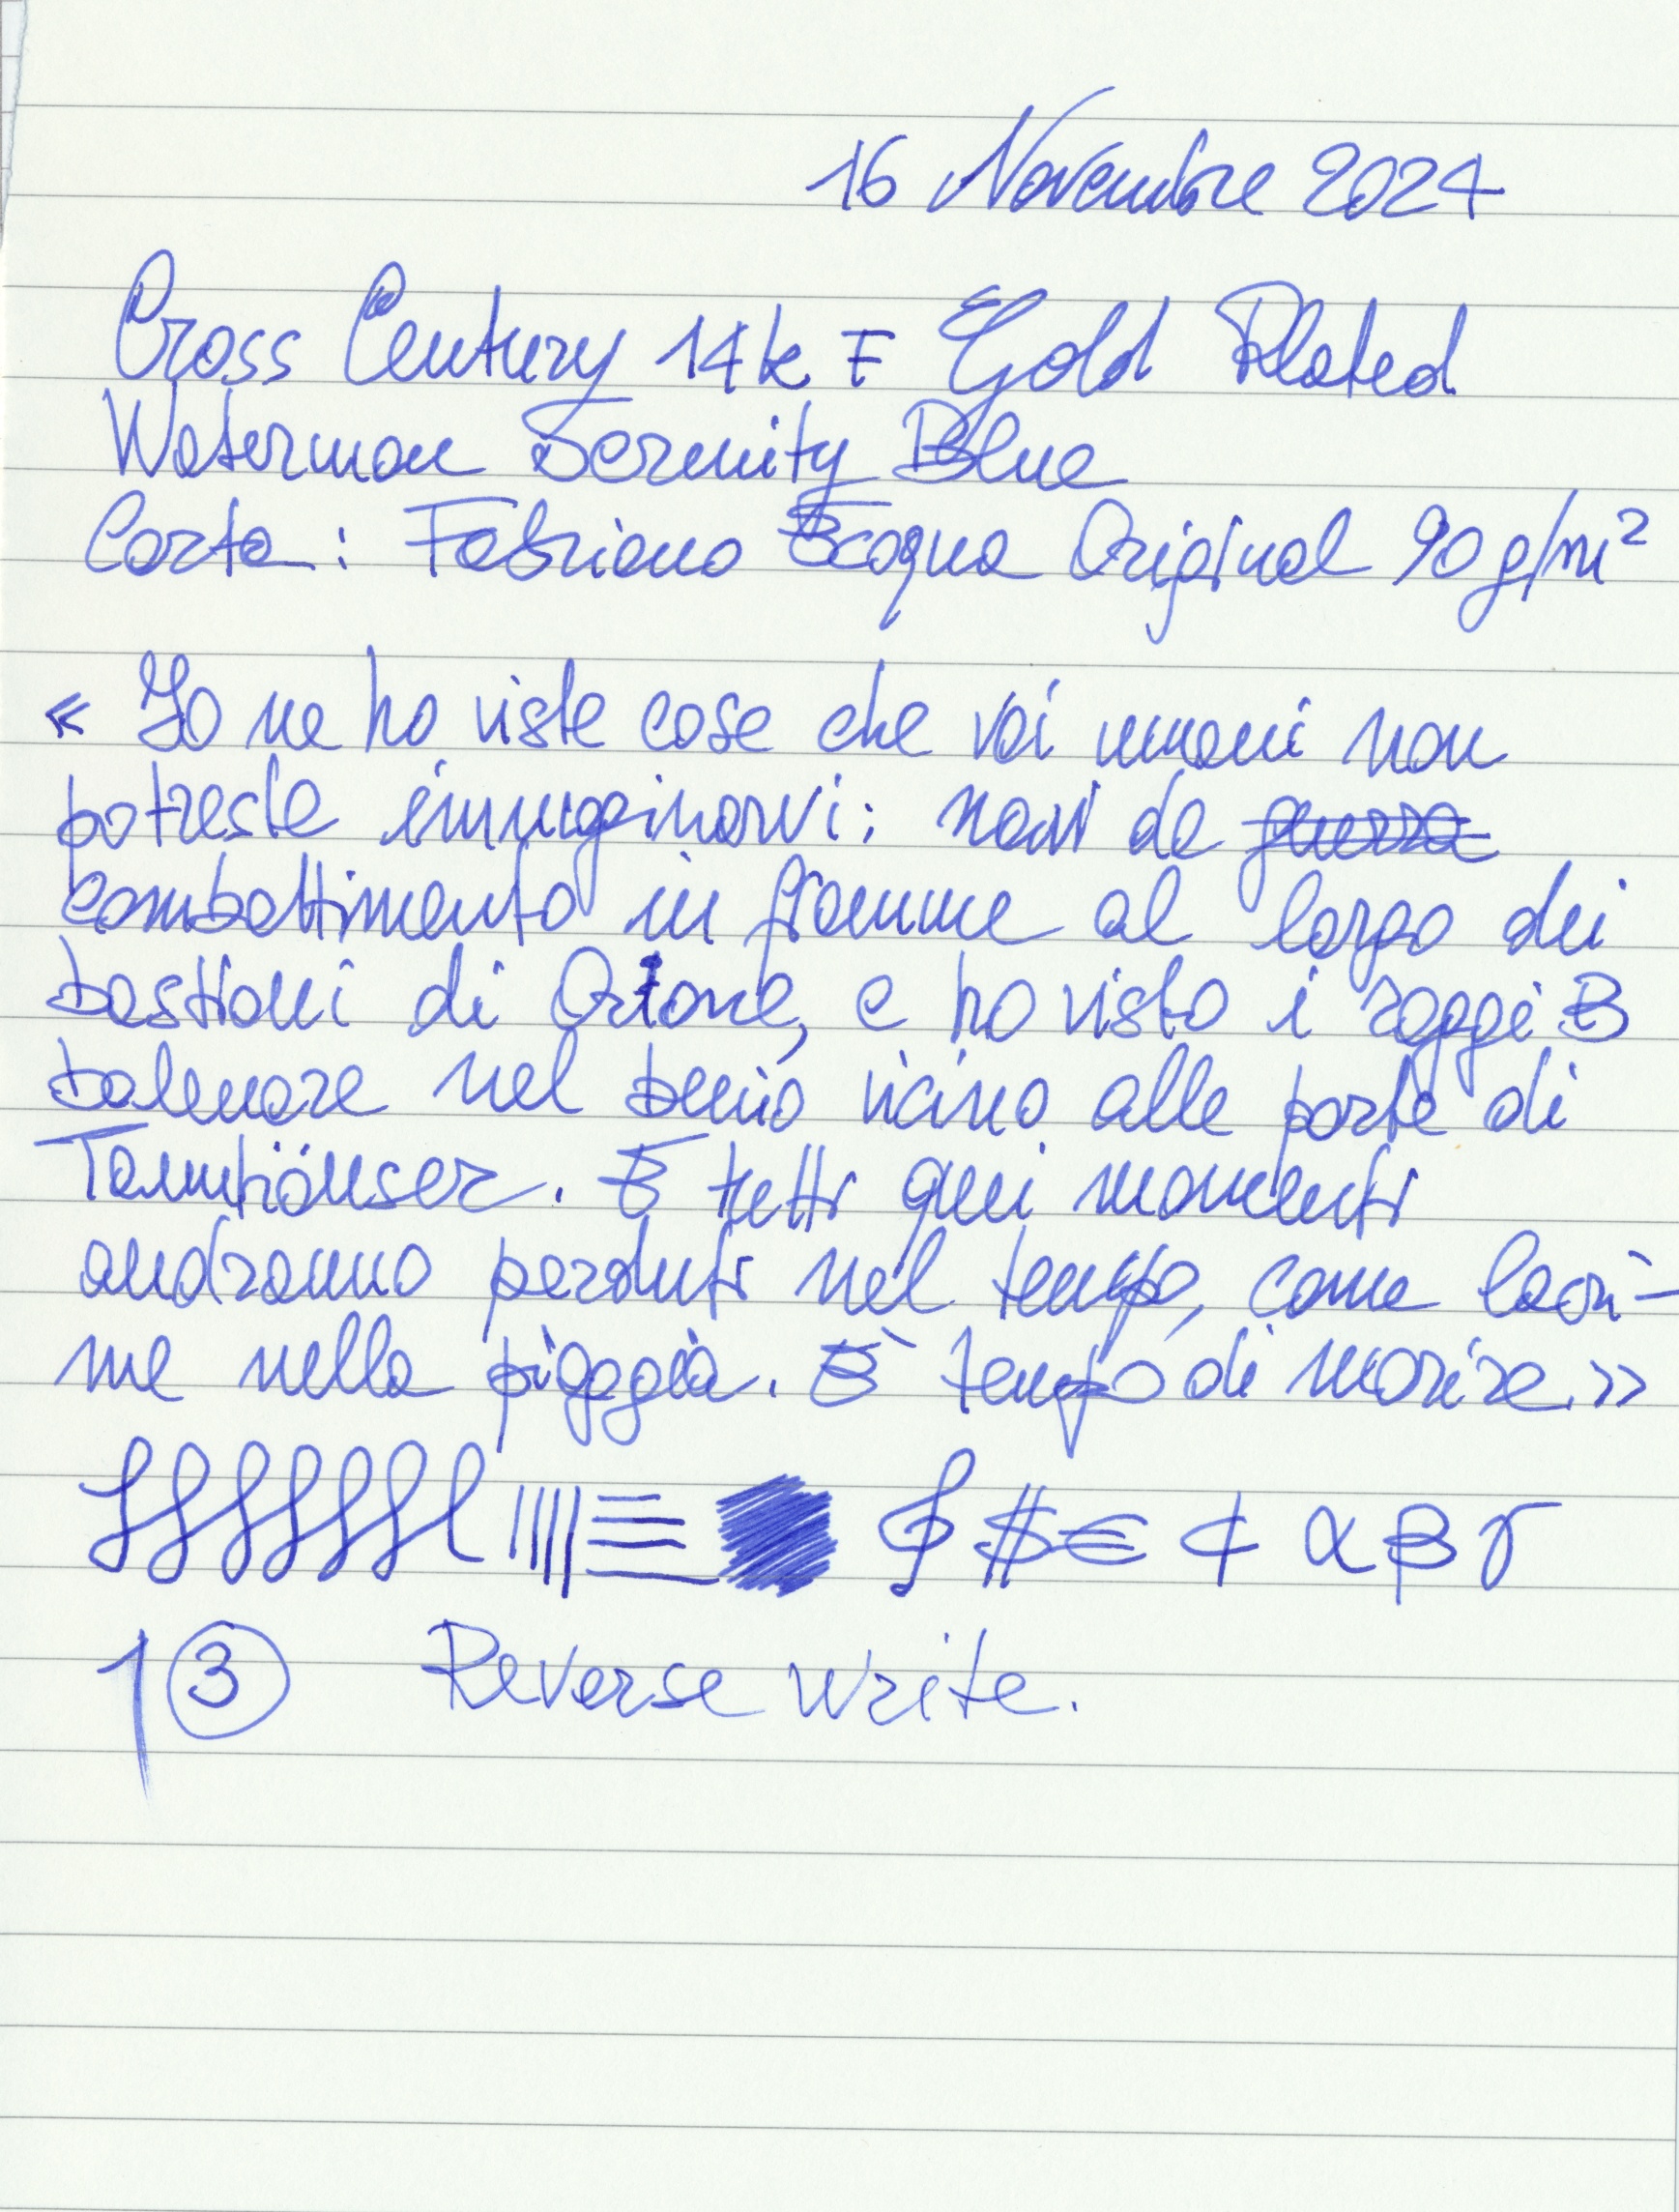 16 Novembre 2024
Cross Century 14k F Gold Plated
Waterman Serenity Blue
Carta: Fabriano Ecoqua Original 90 g/m²
« Io ne ho viste cose che voi umani non
potreste immaginarvi: navi da guerra
combattimento in fiamme al largo dei
bastioni di Orione, e ho visto i raggi B
balenare nel buio vicino alle porte di
Tannhäuser. E tutti quei momenti
andranno perduti nel tempo, come lacri-
me nella pioggia. È tempo di morire.»
$ € ¢ α β γ
1 3 Reverse write.